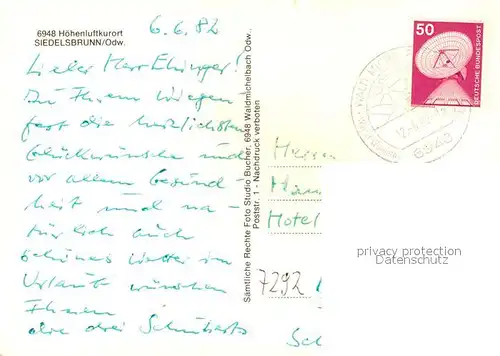 6948 Höhenluftkurort
SIEDELSBRUNN/Odw.
6.6.82
Lieber Herr Ehinger!
Zu Ihrem Wiegen
fest die herzlichsten
Glückwünsche und
vor allem Gesund-
heit und na-
türlich auch
schönes Wetter im
Urlaub wünschen
Ihnen
die drei Schuberts
Sämtliche Rechte Foto Studio Bucher, 6948 Waldmichelbach Odw.
Poststr. 1 - Nachdruck verboten
50
DEUTSCHE BUNDESPOST
6948
Herrn
Hotel
7292
Sch
privacy protection
Datenschutz